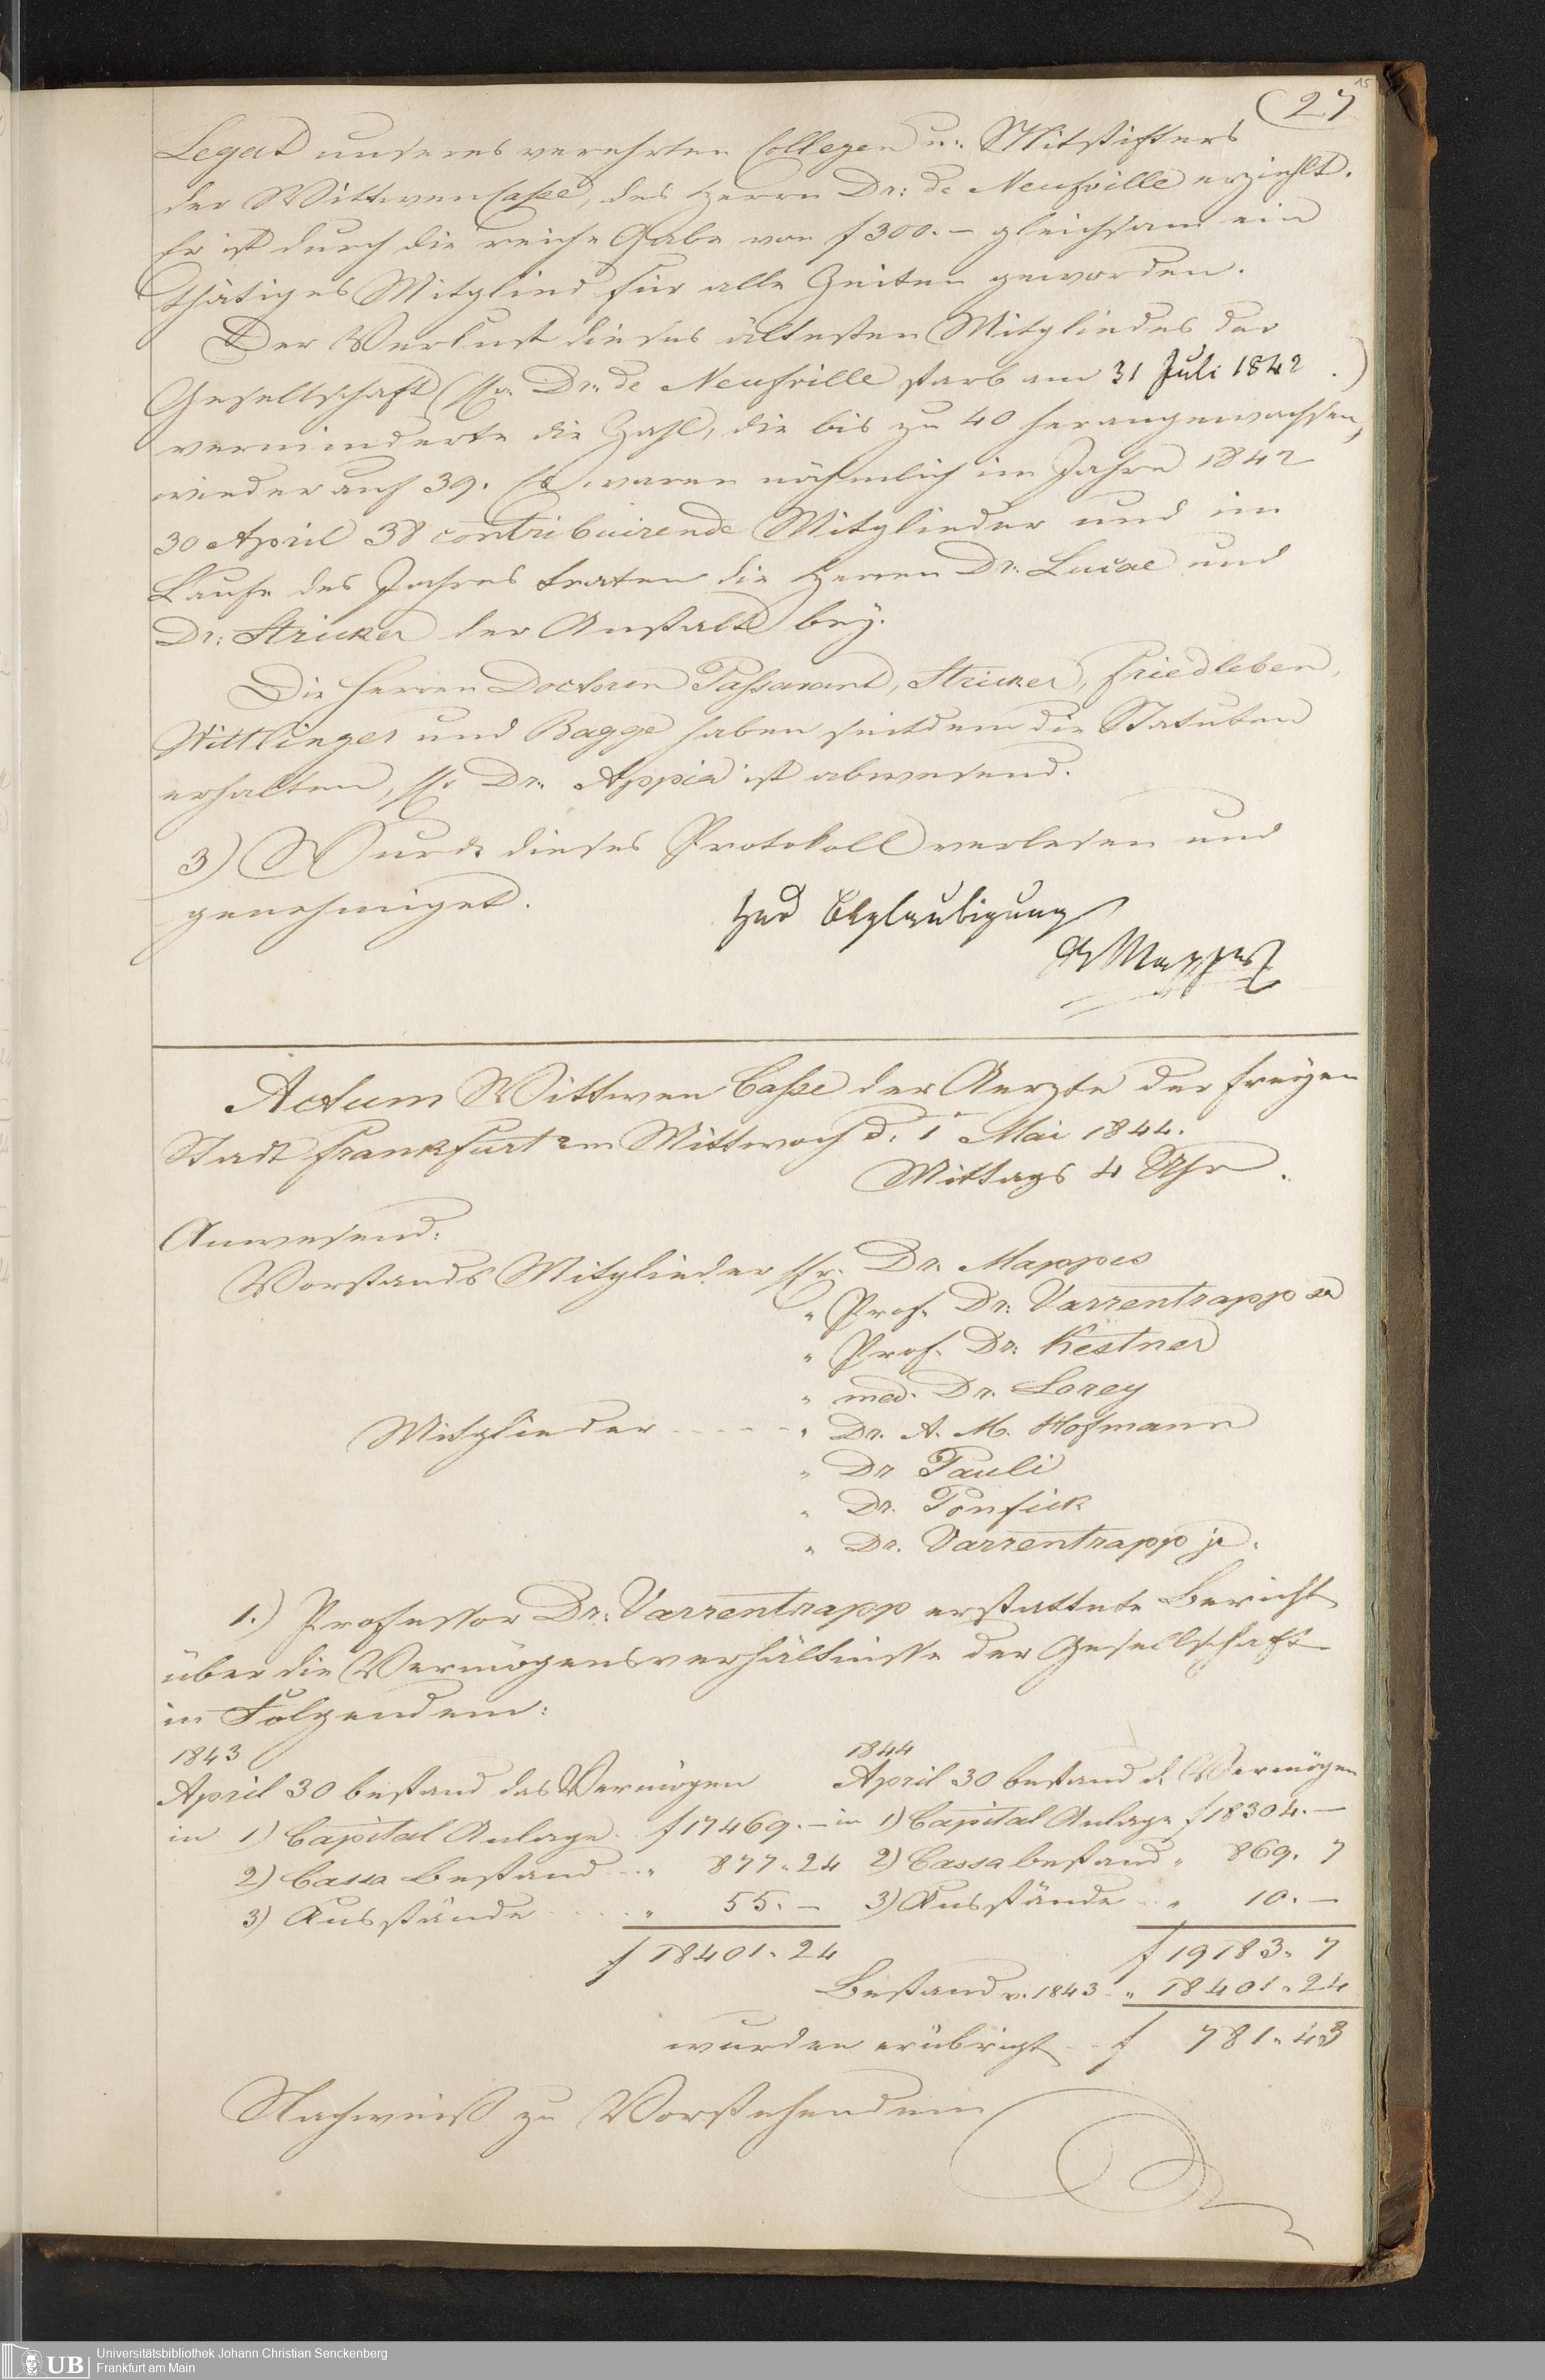 15
27
Legat unseres verehrten Collegen u. Mitstifters
der Wittwen Casse, des Herrn Dr: de Neufville erzielt.
Er ist durch die reiche Gabe von f 300. – gleichsam ein
thätiges Mitglied für alle Zeiten geworden.
Der Verlust dieses ältesten Mitgliedes der
Gesellschaft (Hr. Dr: de Neufville starb am 31 Juli 1842.)
verminderte die Zahl, die bis zu 40 herangewachsen,
wieder auf 39. Es waren nähmlich im Jahre 1842
30 April 38 contribuirende Mitglieder und im
Laufe des Jahres traten die Herren Dr. Lucae und
Dr: Stricker der Anstalt bey.
Die Herren Doctoren Passavant, Stricker, Friedleben,
Mittlinger und Bagge haben seitdem die Statuten
erhalten, Hr Dr. Appia ist abwesend.
3) Wurde dieses Protokoll verlesen und
genehmiget.
Zur Beglaubigung
Dr Mappes
Actum Wittwen Casse der Aerzte der freyen
Stadt Frankfurt am Mittwoch d. 1 Mai 1844.
Mittags 4 Uhr.
Anwesend:
Vorstands Mitglieder Hr. Dr. Mappes
" Prof. Dr: Varrentrapp sr
" Prof. Dr: Kestner
" med. Dr. Lorey
Mitglieder - - - - " Dr. A. M. Hofmann
" Dr Pauli
" Dr. Ponfick
" Dr. Varrentrapp jr.
1.) Professor Dr: Varrentrapp erstattete Bericht
über die Vermögensverhältnisse der Gesellschaft
in Folgendem:
1843 1844
April 30 bestand das Vermögen April 30 bestand d. Vermögen
in 1) Capital Anlage. f 17469. – in 1) Capital Anlage f 18304. –
2) Cassa Bestand . . " 877. 24 2) Cassa bestand " 869. 7
3) Ausstände . . . . " 55. – 3) Ausstände . . " 10. –
f 18401. 24 f 19183. 7
Bestand v. 1843 . " 18401. 24
wurden erübrigt . . f 781. 43
Nachweiß zu Vorstehendem
UB Universitätsbibliothek Johann Christian Senckenberg
Frankfurt am Main